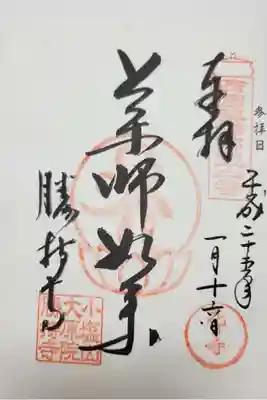 参拝日
奉拝
平成二十五年
一月十六日
薬師如来
勝持寺
小鹽山
大原院
勝持寺